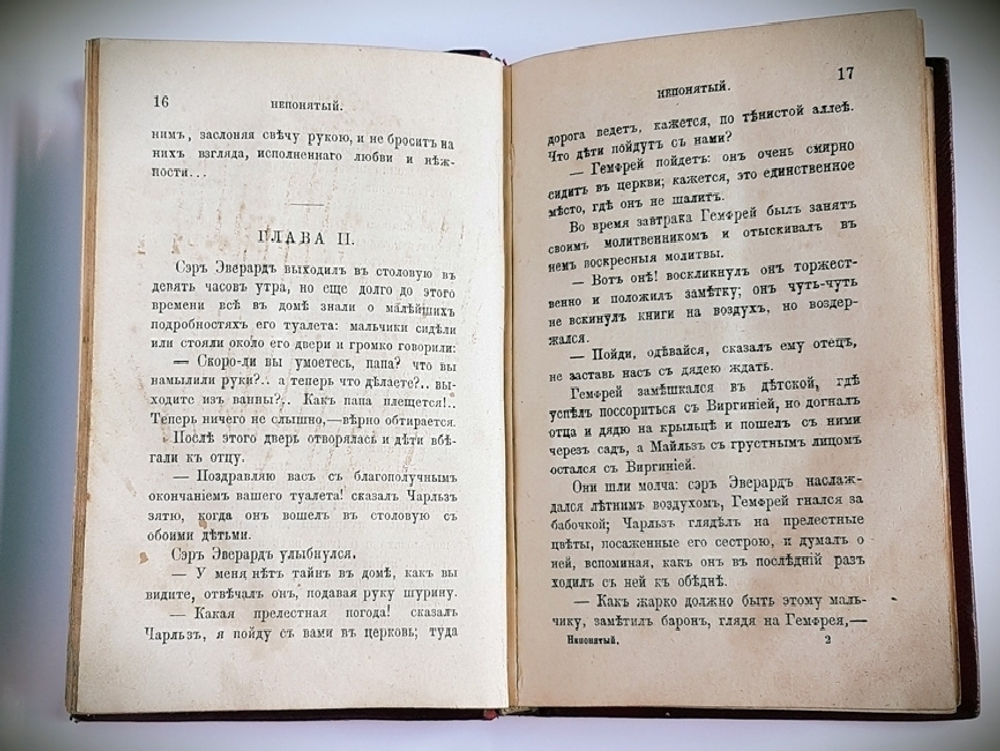 16
НЕПОНЯТЫЙ.
нимъ, заслоняя свѣчу рукою, и не броситъ на
нихъ взгляда, исполненнаго любви и нѣж-
ности...
ГЛАВА II.
Сэръ Эверардъ выходилъ въ столовую въ
девять часовъ утра, но еще долго до этого
времени всѣ въ домѣ знали о малѣйшихъ
подробностяхъ его туалета: мальчики сидѣли
или стояли около его двери и громко говорили:
— Скоро-ли вы умоетесь, папа? что вы
намылили руки?.. а теперь что дѣлаете?.. вы-
ходите изъ ванны?.. Какъ папа плещется!..
Теперь ничего не слышно,—вѣрно обтирается.
Послѣ этого дверь отворялась и дѣти вбѣ-
гали къ отцу.
— Поздравляю васъ съ благополучнымъ
окончаніемъ вашего туалета! сказалъ Чарльзъ
зятю, когда онъ вошелъ въ столовую съ
обоими дѣтьми.
Сэръ Эверардъ улыбнулся.
— У меня нѣтъ тайнъ въ домѣ, какъ вы
видите, отвѣчалъ онъ, подавая руку шурину.
— Какая прелестная погода! сказалъ
Чарльзъ, я пойду съ вами въ церковь; туда
17
НЕПОНЯТЫЙ.
дорога ведетъ, кажется, по тѣнистой аллеѣ.
Что дѣти пойдутъ съ нами?
— Гемфрей пойдетъ: онъ очень смирно
сидитъ въ церкви; кажется, это единственное
мѣсто, гдѣ онъ не шалитъ.
Во время завтрака Гемфрей былъ занятъ
своимъ молитвенникомъ и отыскивалъ въ
немъ воскресныя молитвы.
— Вотъ онѣ! воскликнулъ онъ торжест-
венно и положилъ замѣтку; онъ чуть-чуть
не вскинулъ книги на воздухъ, но воздер-
жался.
— Пойди, одѣвайся, сказалъ ему отецъ,
не заставь насъ съ дядею ждать.
Гемфрей замѣшкался въ дѣтской, гдѣ
успѣлъ поссориться съ Виргиніей, но догналъ
отца и дядю на крыльцѣ и пошелъ съ ними
черезъ садъ, а Майльзъ съ грустнымъ лицомъ
остался съ Виргиніей.
Они шли молча: сэръ Эверардъ наслаж-
дался лѣтнимъ воздухомъ, Гемфрей гнался за
бабочкой; Чарльзъ глядѣлъ на прелестные
цвѣты, посаженные его сестрою, и думалъ о
ней, вспоминая, какъ онъ въ послѣдній разъ
ходилъ съ ней къ обѣднѣ.
— Какъ жарко должно быть этому маль-
чику, замѣтилъ баронъ, глядя на Гемфрея,—
Непонятый.
2